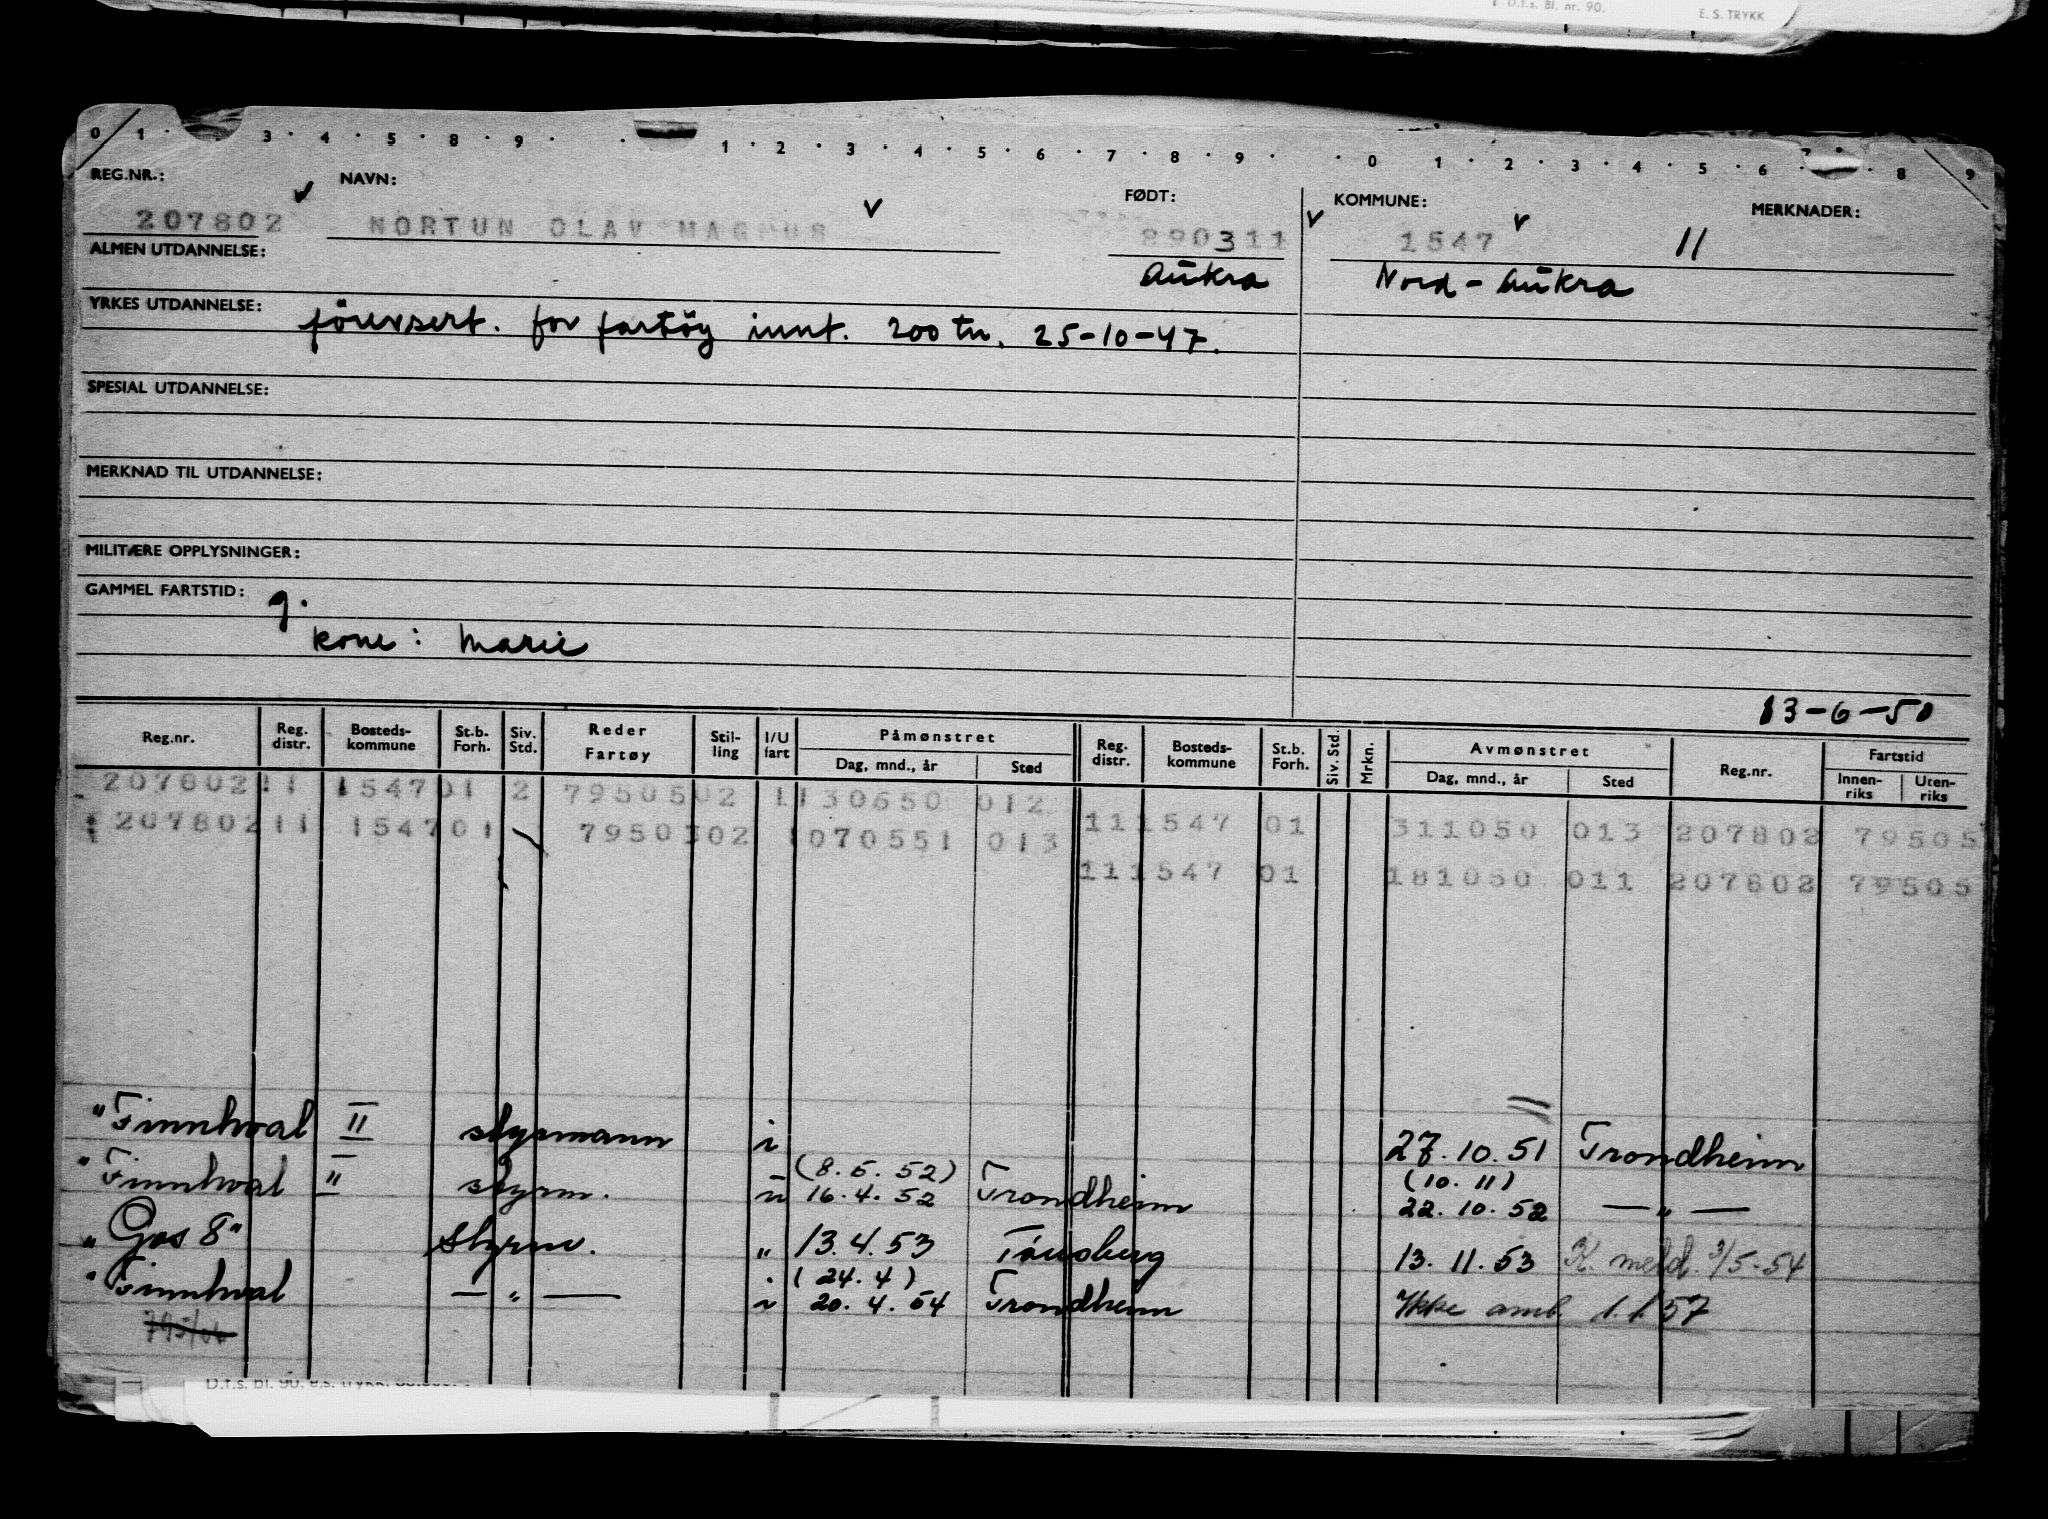 D.f.s. Bl. nr. 90. E. S. TRYKK
0 1 · 3 · 4 · 5 · 8 · 9 · · 1 · 2 · 3 · 4 · 5 · 6 · 7 · 8 · 9 · · 0 1 · 2 · 3 · 4 · 5 · 6 · 8 9
REG.NR.: NAVN: FØDT: KOMMUNE: MERKNADER:
207802 NORTUN OLAV MAGNUS 890311 1547 11
ALMEN UTDANNELSE: Aukra Nord - Aukra
YRKES UTDANNELSE: førersert. for fartøy innt. 200 tn. 25-10-47.
SPESIAL UTDANNELSE:
MERKNAD TIL UTDANNELSE:
MILITÆRE OPPLYSNINGER:
GAMMEL FARTSTID: g.
kone: Marie
13-6-50
Reg.nr. Reg. distr. Bosteds-kommune St.b. Forh. Siv. Std. Reder Fartøy Stil-ling I/U fart Påmønstret Dag, mnd., år Sted Reg. distr. Bosteds-kommune St.b. Forh. Siv. Std. Mrkn. Avmønstret Dag, mnd., år Sted Reg.nr. Fartstid Innen-riks Uten-riks
207802 11 1547 01 2 7950502 1 130650 012
207802 11 1547 01 7950302 1 070551 013 11 1547 01 311050 013 207802 79505
11 1547 01 181050 011 207802 79505
"Finnhval II styrmann i 27.10.51 Trondheim
(8.5.52) (10.11)
"Finnhval II styrm. u 16.4.52 Trondheim 22.10.52 — " —
"Gos 8" Styrm. " 13.4.53 Tönsberg 13.11.53 K. meld. 3/5-54
(24.4)
"Finnhval — " — i 20.4.54 Trondheim Ikke anb. 1.1.57
D.f.s. bl. 90. e.s. trykk.